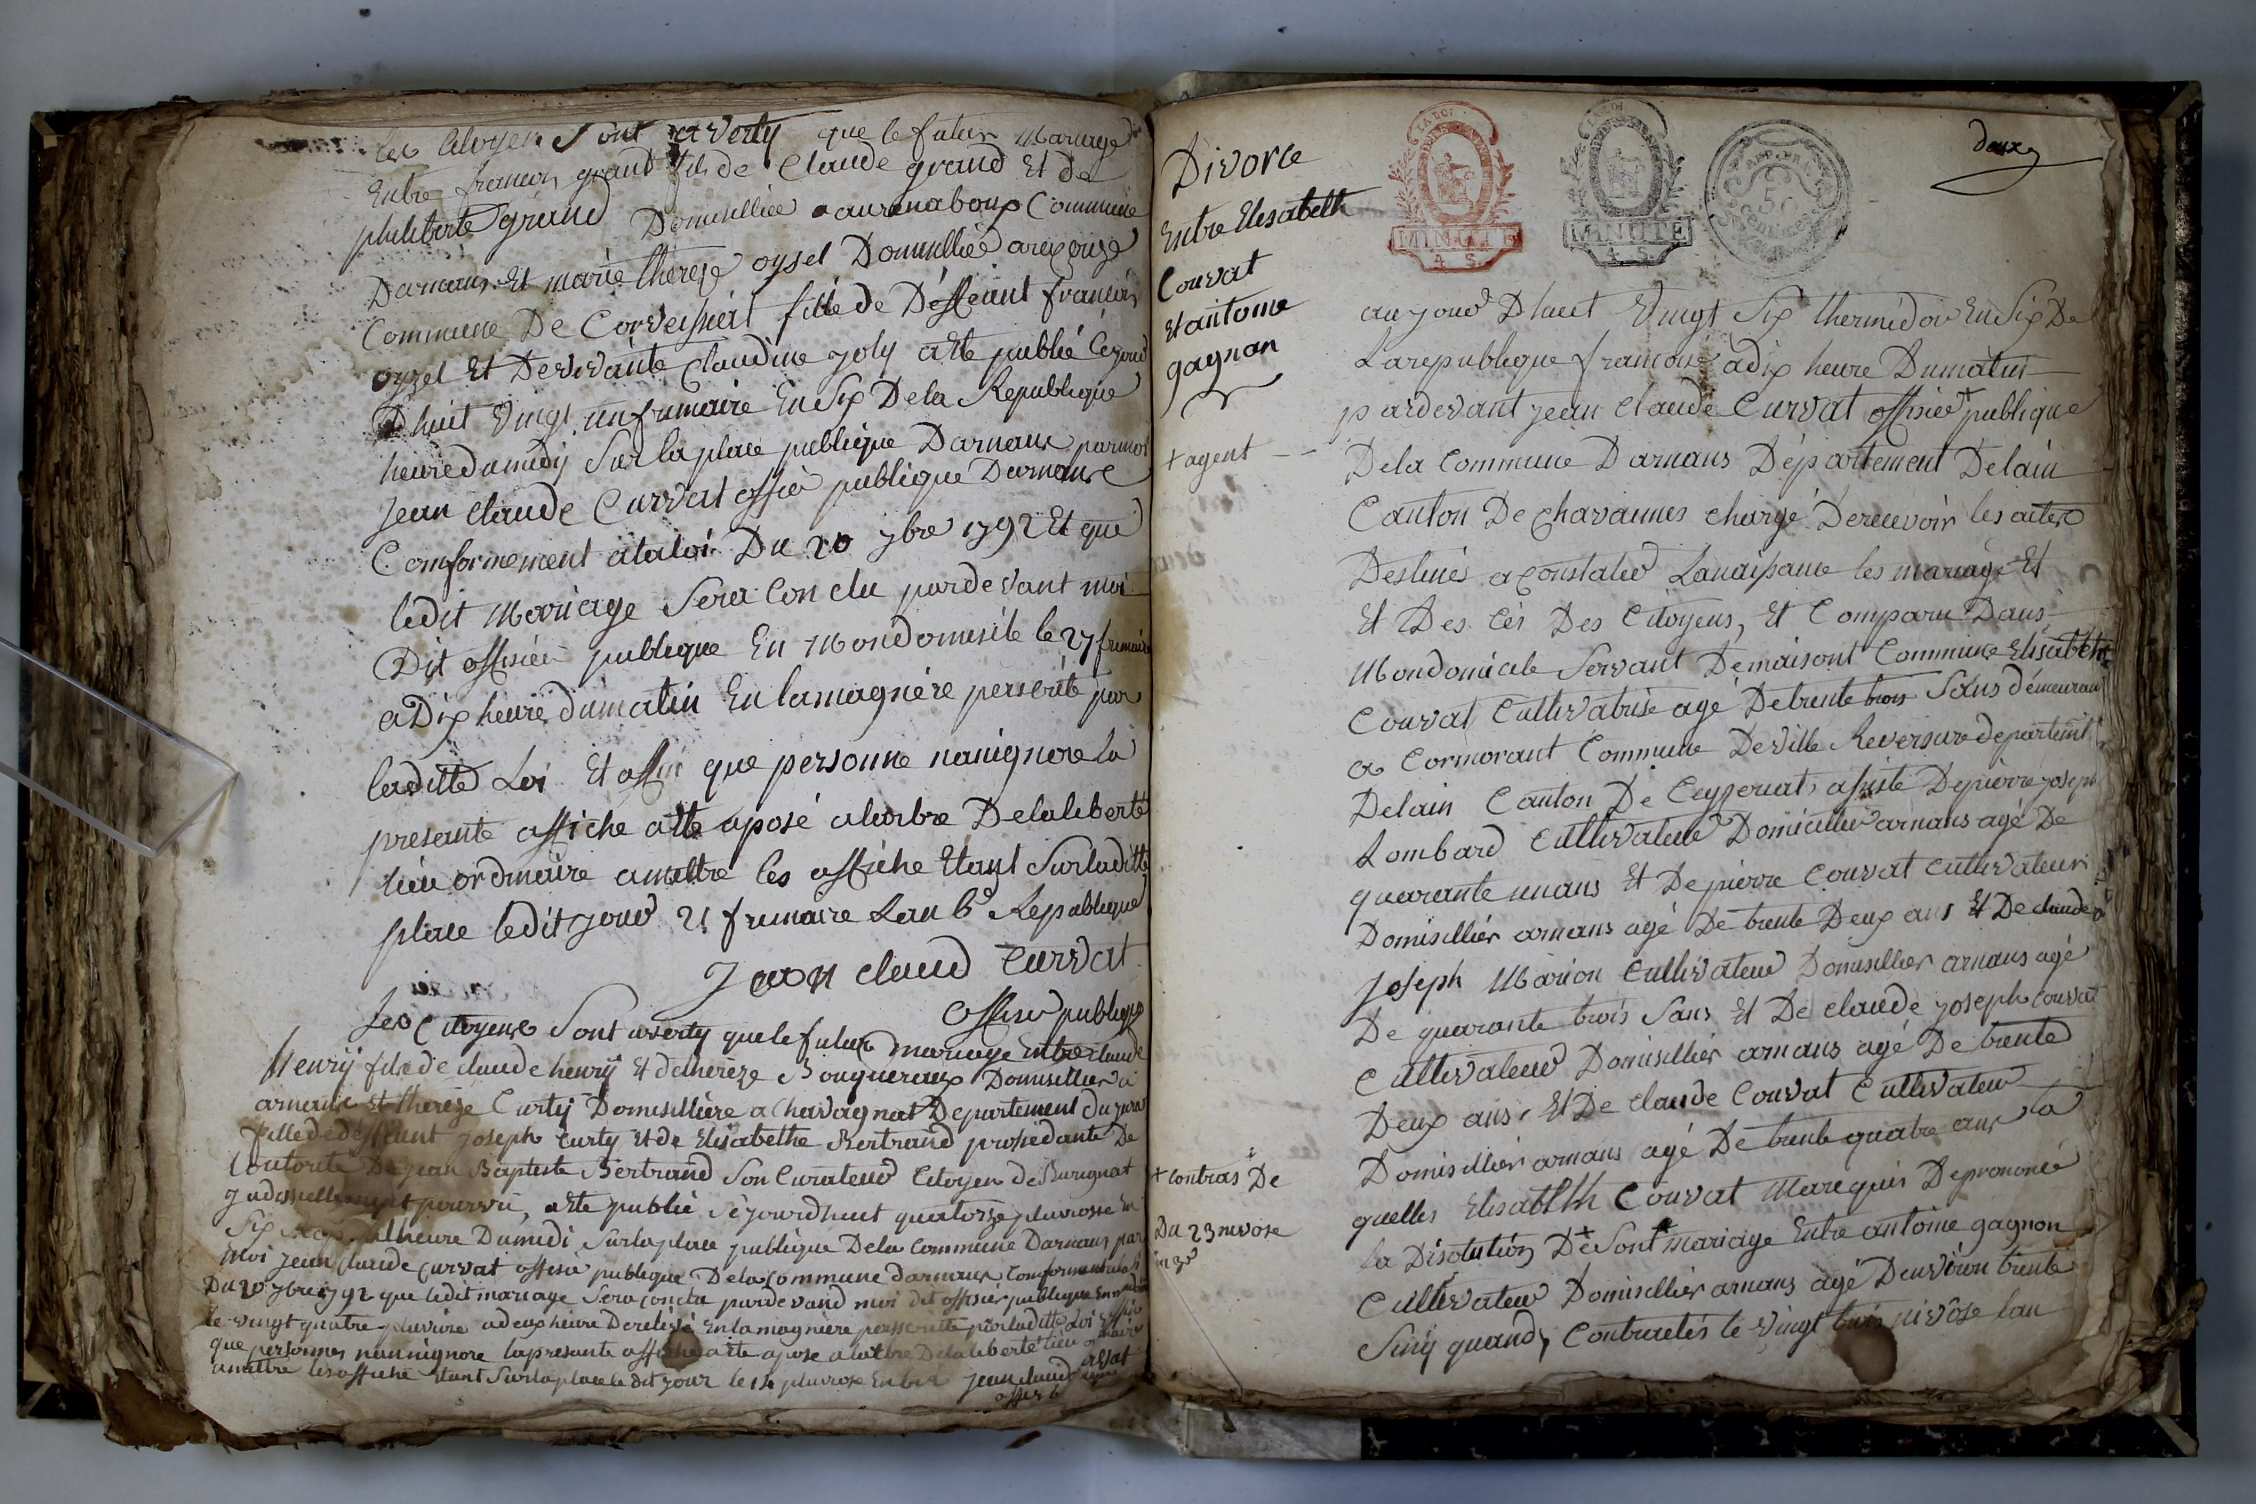 les citoyens sont averty que le futur mariage
Entre francois grand fils de Claude grand Et de
philiberte grand Domisilliée Commune
Darnans Et marie therese oysel Domisilliée
Commune De Corveissiat fille de Déffeunt francois
oyzel Et De vivante Claudine joly aEte publié Cejourd
Dhuit vingt un frimaire En Six De la Republique
heure du midy Sur la place publique Darnans par moi
Jean Claude Curvat offisié publique Darnans
Comformement alaloi Du 20 7bre 1792 Et que
ledit Mariage Sera Conclu pardevant moi
Dit offisier publique En Mondomisile le 27 frimaire
a Dix heure dumatin En lamagniere perscrite par
laditte Loi Et affin que personne nanignore la
presante affiche aEte aposé alarbre Delaliberté
lieu ordinaire amettre les affiche Etant Surladitte
place ledit jour 21 frimaire Lan 6e Republique
Jean claud Curvat
offisier publique
Les Citoyens Sont averty que le futur mariage Entre claude
Henrij fils de claude henrij Et de therèze Bouquereaux Domisillier a
arnans Et thereze Curtij Domisillière a Chavagnat Departement du jura
fille de deffeunt joseph Curty Et de Elisabethe Bertrand prossedante De
Lautorité De jean Baptiste Bertrand Son Curateur Citoyen de
judissiellement pourvu, aEte publié Cejourdhuit quatorze pluviosse En
Six alheure Dumidi Surlaplace publique Dela Commune Darnans par
Moi jean claude Curvat offisié publique Delacommune darnans Comformement
Du 20 7bre 1792 que ledit mariage Sera conclu pardevand moi dit offisier publique En
le vingt quatre pluviose adeux heure Enlamagniere persscritte par laditte Loi Et affin
que personnes nannignore lapresante affiche aEte aposé alarbre Delaliberté lieu
amettre les affiche Etant Surlaplace le dit jour le 14 pluviose jean claud Curvat
Divorce
Entre Elisabeth
Couvat
Et antoine
gagnon
+ agent
+ contras De
Du 23 nivose
LA LOI
MINUTE
4. S.
MINUTE
4. S.
50
deux
aujour Dhuit Vingt Six thermidor En Six De
Larepublique francoise adix heure Dumatin
pardevant jean Claude Curvat offisier + publique
Dela Commune Darnans Département Delain
Canton De Chavannes chargé Derecevoir les actes
Destinés aconstater Lanaissance les mariage Et
Et Des Cés Des Citoyens, Et Comparu Dans
Mondomicile Servant Demaisont Commune Elisabeth
Couvat Cultivatrise agé Detrente trois Sans démeurant
a Cormorant Commune De ville Reversure departemt
Delain Canton De Ceyzeriat, assisté Depierre joseph
Lombard Cultivateur Domicillié arnans agé De
quarante unans Et Depierre Couvat Cultivateur
Domisillier arnans agé De trente Deux ans Et De claude
Joseph Marion Cultivateur Domisillier arnans agé
De quarante trois Sans Et De claude joseph Couvat
Cultivateur Domisillier arnans agé De trente
Deux ans, Et De claude Couvat Cultivateur
Domisillier arnans agé De trente quatre ans la
quelles Elisabeth Couvat Marequis Deprononcé
la Disolution De + Sont mariage Entre antoine gagnon
Cultivateur Domisillier arnans agé Denviron trente
Sinq quands, Contractés le vingt trois nivôse lan